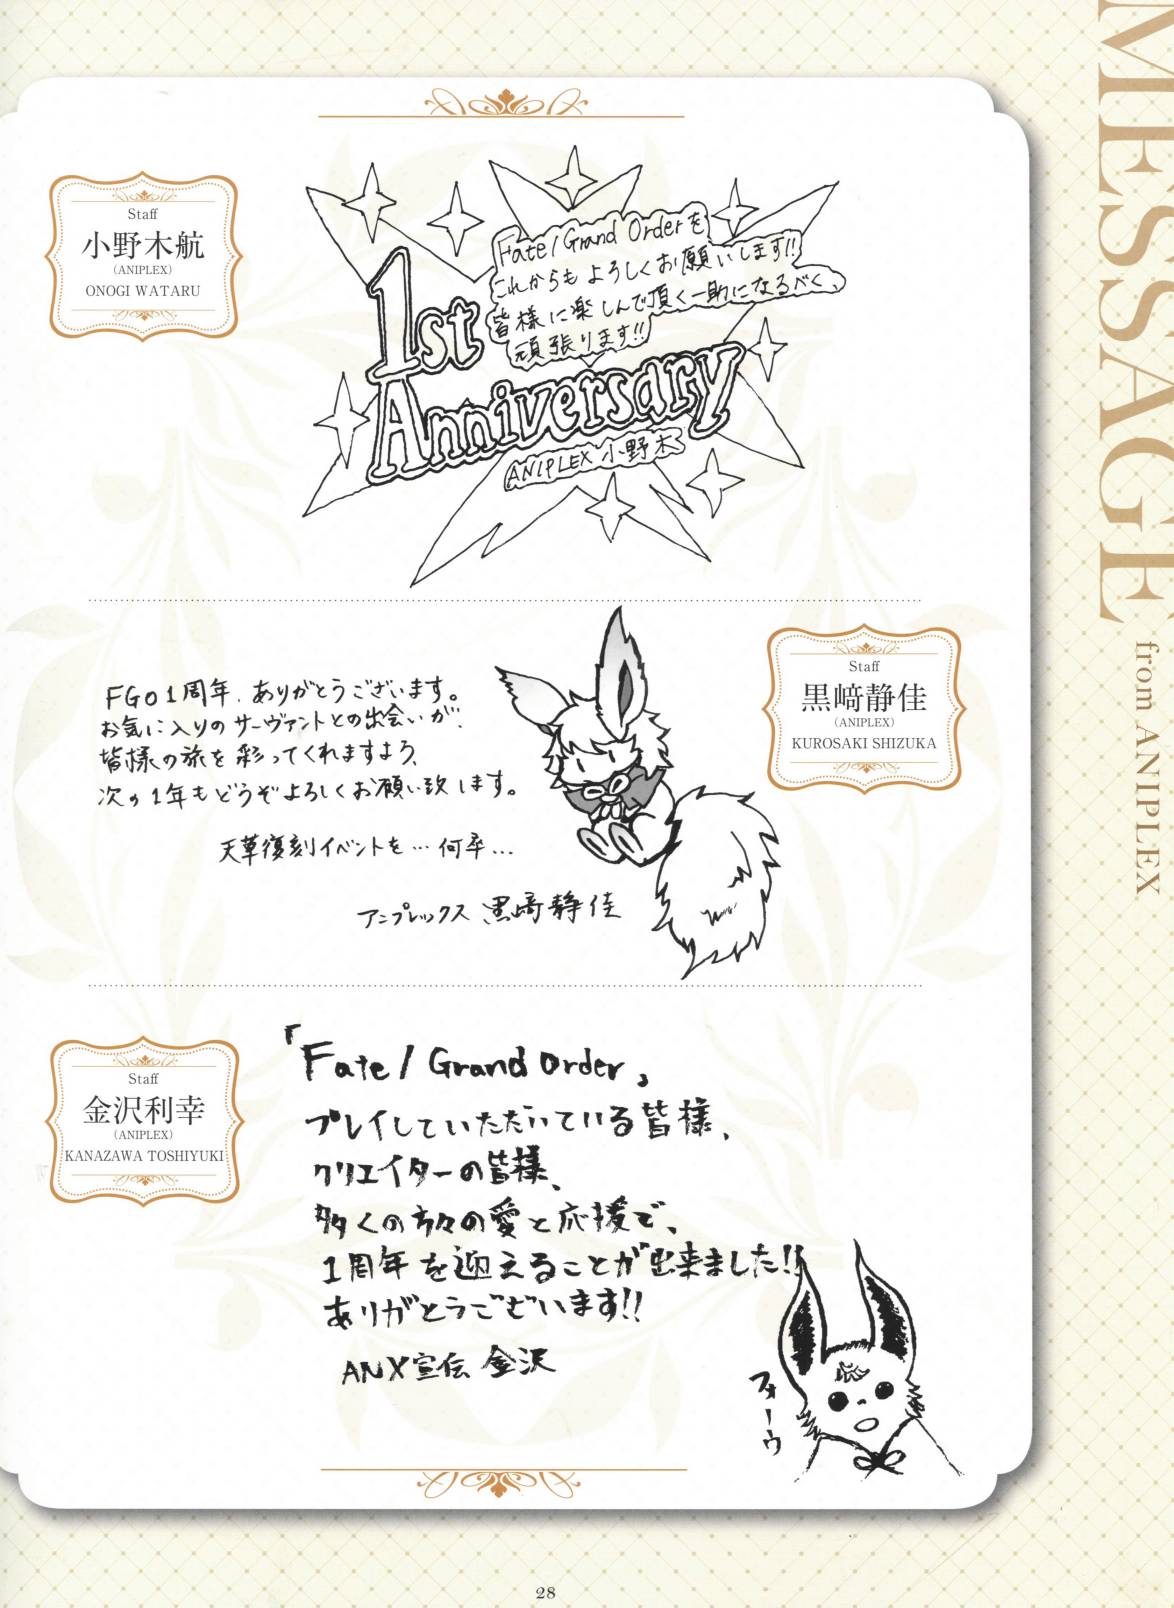 MESSAGE from ANIPLEX
Staff
小野木航
(ANIPLEX)
ONOGI WATARU
Fate/Grand Orderを
これからもよろしくお願いします!!
皆様に楽しんで頂く一助になるべく、
頑張ります!!
1st
Anniversary
ANIPLEX 小野木
Staff
黒﨑静佳
(ANIPLEX)
KUROSAKI SHIZUKA
FGO1周年、ありがとうございます。
お気に入りのサーヴァントとの出会いが、
皆様の旅を彩ってくれますよう、
次の1年もどうぞよろしくお願い致します。
天草復刻イベントを…何卒…
アニプレックス 黒﨑静佳
Staff
金沢利幸
(ANIPLEX)
KANAZAWA TOSHIYUKI
「Fate/Grand Order」
プレイしていただいている皆様、
クリエイターの皆様、
多くの方々の愛と応援で、
1周年を迎えることが出来ました!!
ありがとうございます!!
ANX宣伝 金沢
フォーウ
28